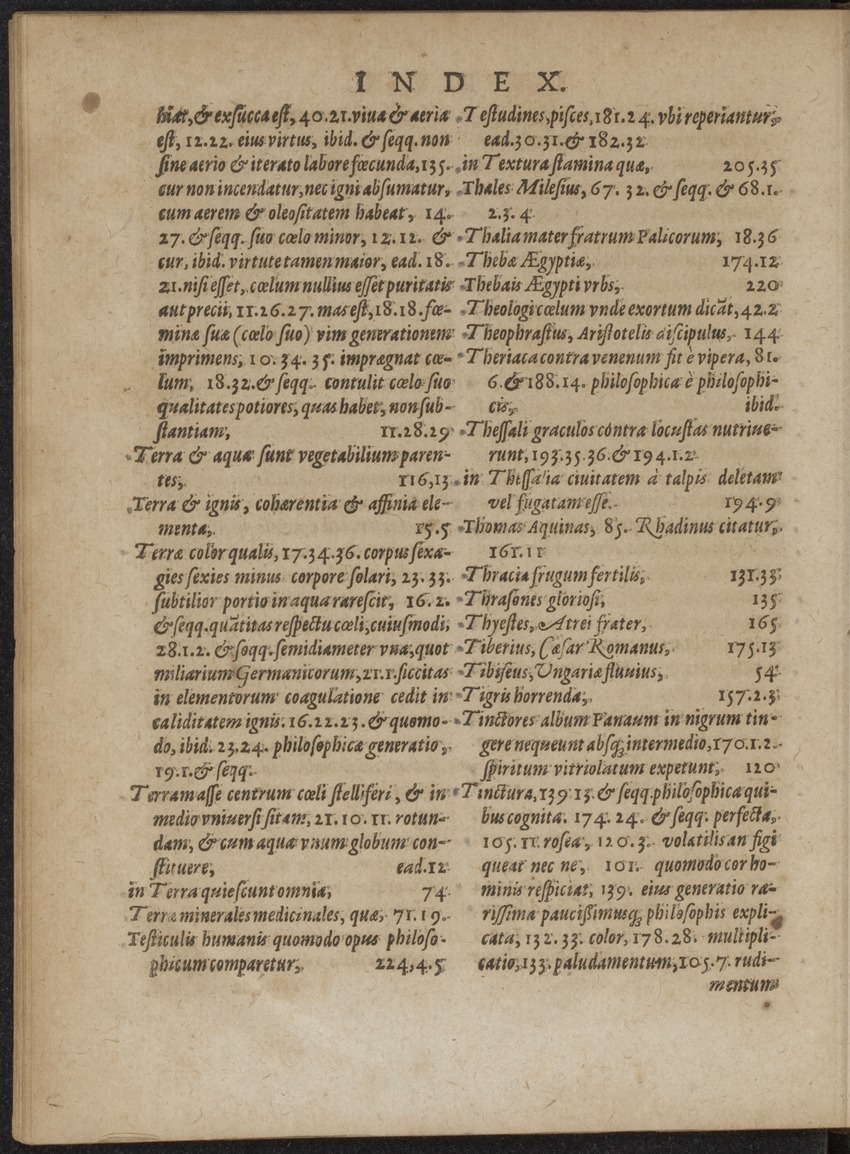 INDEX.
hiãt, & exsucca est, 40.21. viua & aeria
est, 12.22. eius virtus, ibid. & seqq. non
sine aerio & iterato labore fœcunda, 135.
cur non incendatur, nec igni absumatur,
cum aerem & oleositatem habeat, 14.
27. & seqq. suo cœlo minor, 12.12. &
cur, ibid. virtute tamen maior, ead. 18.
21. nisi esset, cœlum nullius esset puritatis
aut precii, 11.26.27. mas est, 18.18. fœ-
minæ suæ (cœlo suo) vim generationem
imprimens, 10.34.35. imprægnat cœ-
lum, 18.32. & seqq. contulit cœlo suo
qualitates potiores, quas habet, non sub-
stantiam, 11.28.29
Terra & aquæ sunt vegetabilium paren-
tes, 116,13
Terra & ignis, cohærentia & affinia ele-
menta, 15.5
Terræ color qualis, 17.34.36. corpus sexa-
gies sexies minus corpore solari, 23.33.
subtilior portio in aqua rarescit, 16.2.
& seqq. quãtitas respectu cœli, cuiusmodi,
28.1.2. & seqq. semidiameter vna, quot
miliarium Germanicorum, 21.1. siccitas
in elementorum coagulatione cedit in
caliditatem ignis. 16.22.23. & quomo-
do, ibid. 23.24. philosophicæ generatio,
19.1. & seqq.
Terram asse centrum cœli stelliferi, & in
medio vniuersi sitam, 21.10.11. rotun-
dam, & cum aqua vnum globum con-
stituere, ead.12
in Terra quiescunt omnia, 74
Terræ minerales medicinales, quæ, 71.19.
Testiculis humanis quomodo opus philoso-
phicum comparetur, 224,4.5
Testudines, pisces, 181.24. vbi reperiantur,
ead.30.31. & 182.32
in Textura stamina quæ, 205.35
Thales Milesius, 67.32. & seqq. & 68.1.
2.3.4
Thalia mater fratrum Palicorum, 18.36
Thebæ Ægyptiæ, 174.12
Thebais Ægypti vrbs, 220
Theologi cœlum vnde exortum dicãt, 42.2
Theophrastus, Aristotelis discipulus, 144
Theriaca contra venenum fit è vipera, 81.
6. & 188.14. philosophica è philosophi-
cis, ibid.
Thessali graculos contra locustas nutriue-
runt, 193.35.36. & 194.1.2
in Thessalia ciuitatem à talpis deletam
vel fugatam esse. 194.9
Thomas Aquinas, 85. Rhadinus citatur,
161.11
Thracia frugum fertilis, 131.33
Thrasones gloriosi, 135
Thyestes, Atrei frater, 165
Tiberius, Cæsar Romanus, 175.13
Tibiseus, Vngariæ fluuius, 54
Tigris horrenda, 157.2.3
Tinctores album Panaum in nigrum tin-
gere nequeunt absq; intermedio, 170.1.2.
spiritum vitriolatum expetunt, 120
Tinctura, 139.13. & seqq. philosophica qui-
bus cognita. 174.24. & seqq. perfecta,
105.11. rosea, 120.3. volatilis an figi
queat nec ne, 101. quomodo cor ho-
minis respiciat, 139. eius generatio ra-
rissima paucißimusq; philosophis expli-
cata, 132.33. color, 178.28. multipli-
catio, 133. paludamentum, 105.7. rudi-
mentum